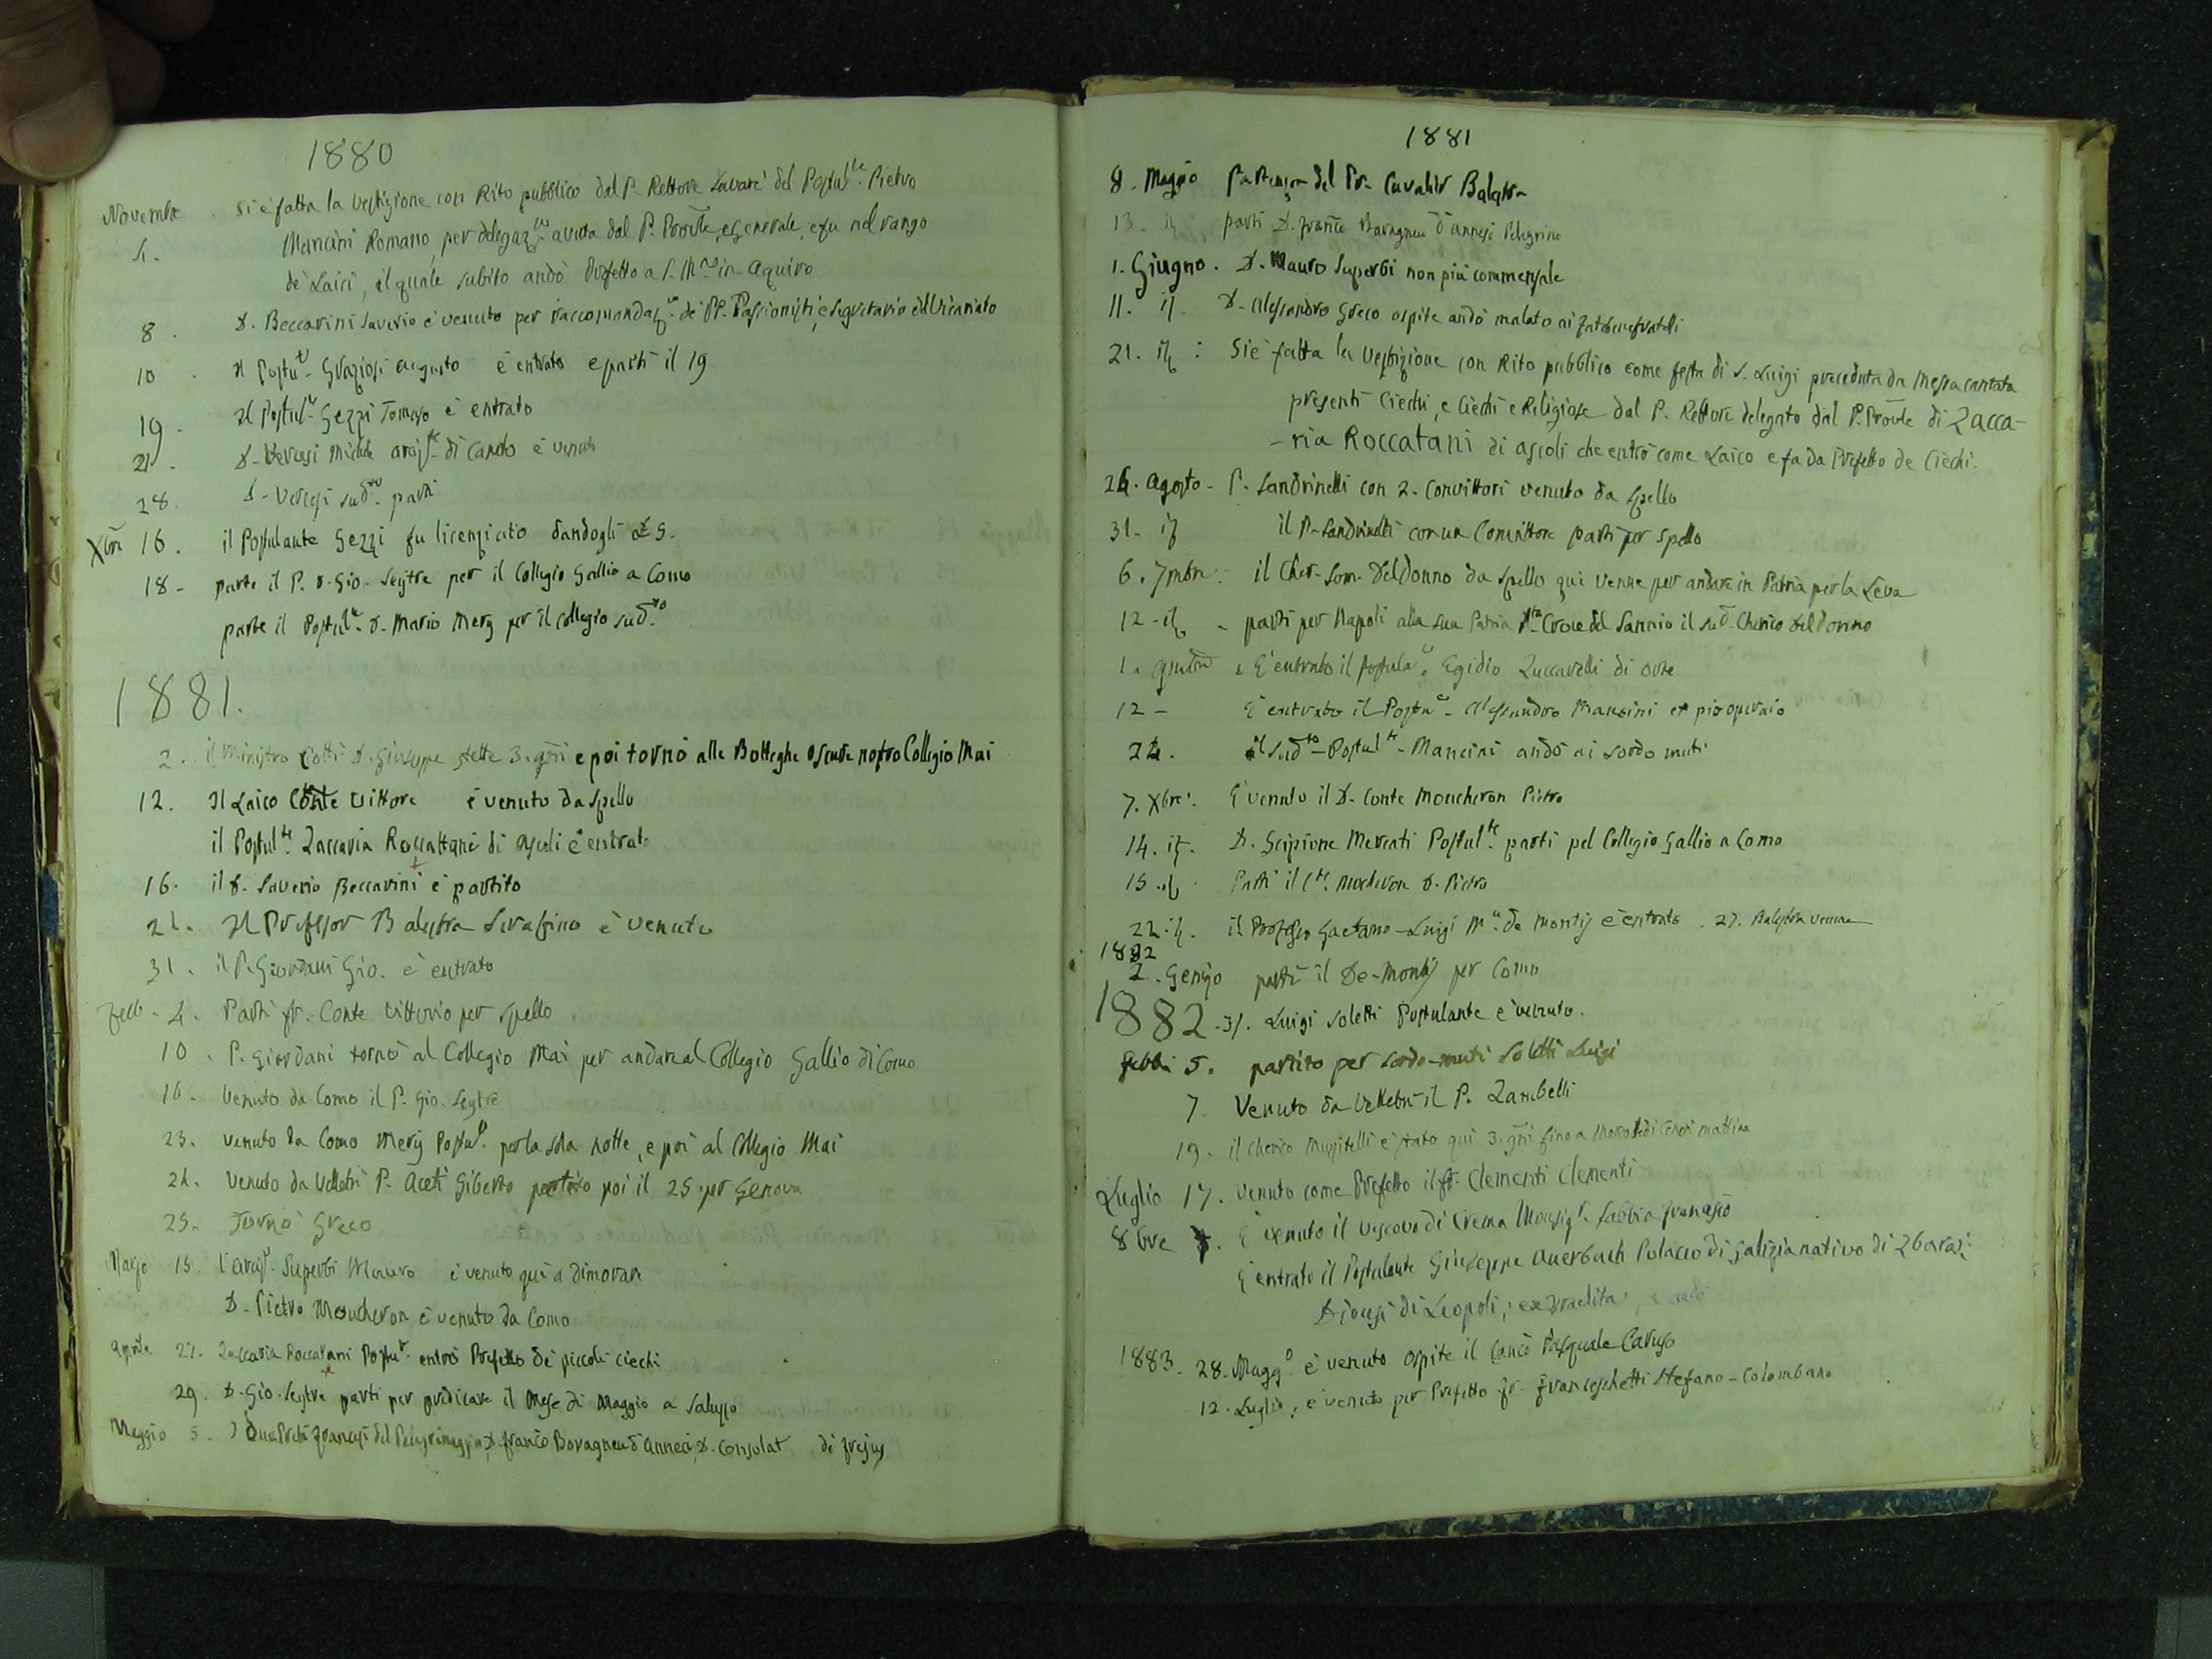 1880
Novembre . Si è fatta la Vestizione con Rito pubblico dal P. Rettore Savarè del Postul.te Pietro
4. Mancini Romano, per delegaz.ne avuta dal P. Prov̄le, e Generale, e fu nel rango
de' Laici, il quale subito andò Prefetto a S. M.a in Aquiro
8. D. Beccarini Saverio è venuto per raccomandaz.e de' PP. Passionisti, e Segretario del Vicariato
10. Il Postu.te Graziosi Augusto è entrato e partì il 19
19. Il Postul.e Gezzi Tomaso è entrato
21. D. Vercesi Michele di è venuto
28. D. Vercesi sud.to partì
Xbre 16. il Postulante Gezzi fu licenziato dandogli 5.
18 - parte il P. D. Gio. Seytre per il Collegio Gallio a Como
parte il Postul.e D. Mario Merg per il Collegio sud.to
1881.
2. il Ministro D. Giuseppe stette 3. g̅ni e poi tornò alle Botteghe oscure nostro Collegio Mai
12. Il Laico Conte Vittore è venuto da Spello
il Postul.te Zaccaria Roccattani di Ascoli è entrato
16. il D. Saverio Beccarini è partito
21. Il Professor Balestra Serafino è venuto
31. il P. Giordani Gio. è entrato
Febb. 4. Partì fr. Conte Vittorio per Spello
10. P. Giordani tornò al Collegio Mai per andare al Collegio Gallio di Como
16. Venuto da Como il P. Gio. Seytre
23. venuto da Como Merg Postul.e per la sola notte, e poi al Collegio Mai
24. Venuto da Velletri P. Aceti Giberto partito poi il 25 per Genova
25. Tornò Greco
Marzo 15. Superbi Mauro è venuto qui a dimorare
D. Pietro Moucheron è venuto da Como
Aprile 27. Zaccaria Roccatani Postu.te entrò Prefetto de' piccoli ciechi
29. D. Gio. Seytre partì per predicare il Mese di Maggio a Saluzzo
Maggio 5. due Preti francesi del Pelegrinaggio, D. Franco Bovagneu d'Anneci, D. Consolat di Frejus
1881
8. Maggio Partenza del Pr. Cavalier Balestra
13. id partì D. Franc̄o Bovagneu d'Annesi Pelegrino
1. Giugno. D. Mauro Superbi non più commensale
11. id. D. Alessandro Greco ospite andò malato ai Fatebenefratelli
21. id : Si è fatta la Vestizione con Rito pubblico come festa di S. Luigi preceduta da Messa cantata
presenti Ciechi, e Cieche e Religiose dal P. Rettore delegato dal P. Prov̄le di Zacca-
-ria Roccatani di Ascoli che entrò come Laico e fa da Prefetto de' Ciechi.
24. Agosto - P. Sandrinelli con 2. Convittori venuto da Spello
31. id il P. Sandrinelli con un Convittore partì per Spello
6. 7mbre. il Cher. Som. Deldonno da Spello qui venne per andare in Patria per la Leva
12 - id - partì per Napoli alla sua Patria S.ta Croce del Sannio il sud. Cherico Deldonno
1. 9mbre . È entrato il Postula.e Egidio Zuccarelli di Orte
12 - È entrato il Postu.e Alessandro Mancini ex pio operaio
24. il sud.to Postul.te Mancini andò ai Sordo muti
7. Xbre. È venuto il D. Conte Moucheron Pietro
14. id. D. Scipione Mercati Postul.te partì pel Collegio Gallio a Como
15. id. Partì il C.te Mocheron D. Pietro
22. id. il Professo Gaetano - Luigi M.a de Montis è entrato . 27. Balestra venne
1882
2. Genjo partì il De-Montis per Como
1882 - 31. Luigi Soletti Postulante è venuto.
Febb. 5. partito per sordo-muti Soletti Luigi
7. Venuto da Velletri il P. Zambelli
19. il Cherico è stato qui 3. g̅ni fino a Mercoledi Ceneri mattina
Luglio 17. venuto come Prefetto il fr. Clementi Clementi
8bre È venuto il Vescovo di Crema Monsig.r Sabbia Franc̄o
È entrato il Postulante Giuseppe Auerbach Polacco di Galizia nativo di Zbaraz
Diocesi di Leopoli, ex Israelita, e andò
1883. 28. Magg.o è venuto Ospite il Canc̄o Pasquale Caruso
12. Luglio, è venuto per Prefetto fr. Franceschetti Stefano - Colombano